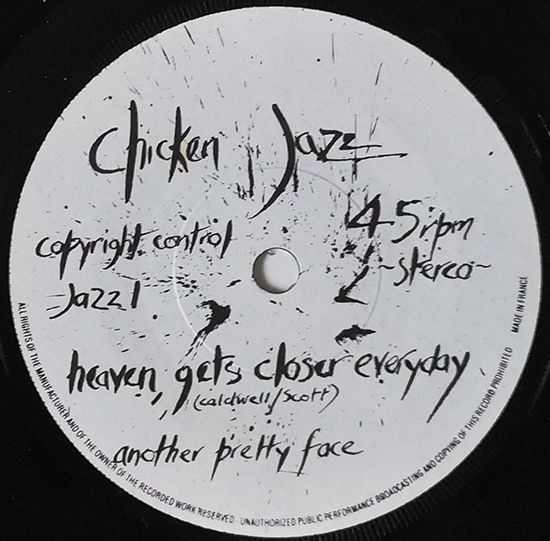 Chicken Jazz
45 rpm
copyright control
~stereo~
Jazz 1
heaven gets closer everyday
(caldwell/scott)
another pretty face
ALL RIGHTS OF THE MANUFACTURER AND OF THE OWNER OF THE RECORDED WORK RESERVED · UNAUTHORIZED PUBLIC PERFORMANCE BROADCASTING AND COPYING OF THIS RECORD PROHIBITED
MADE IN FRANCE